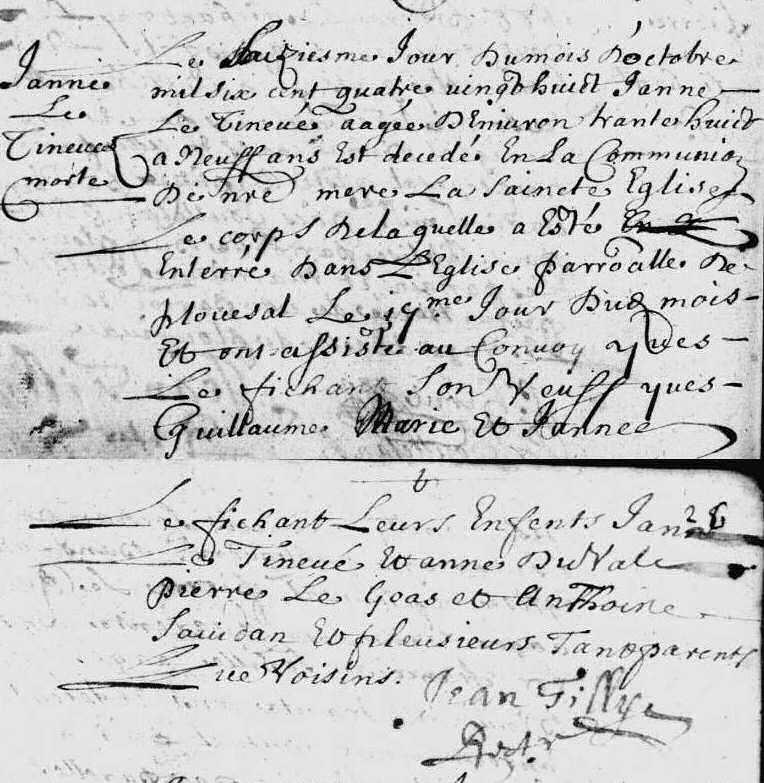 Janne
Le
Tineuez
morte
Le Saiziesme Jour Dumois D'octobre
mil six cent quatre vingt huict Janne
Le Tinevé aagée D'Enuiron trante huict
a Neuff ans Est decedé En La Communion
De nre mere La Saincte Eglise
Le corps De laquelle a Esté
Enterré Dans L'Eglise parroalle De
plouesat Le 17me Jour Dud mois
Et ont assisté au Convoy yves
Le fichant Son Veuff yves
Guillaume Marie Et Jannee
Le fichant Leurs Enfents Jan
Le Tinevé Et anne Du Val
pierre Le Geas et Anthoine
Et pleusieurs Tant parents
Que Voisins.
Jean Filly
Rectr